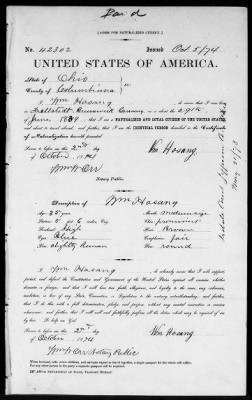 Paid
[FORM FOR NATURALIZED CITIZEN.]
No. 42302 Issued Oct. 5/74
UNITED STATES OF AMERICA.
State of Ohio
County of Columbiana
I Wm Hosang, do swear that I was born
in Germany on the
June 1839; that I am a NATURALIZED AND LOYAL CITIZEN OF THE UNITED STATES,
and about to travel abroad; and further, that I am the IDENTICAL PERSON described in the Certificate
of Naturalization herewith presented.
Sworn to before me this 2nd day
of October 1874
Wm Hosang
Wm W Orr
Notary Public.
Description of Wm Hosang
Age: 35 years
Mouth: medium size
Stature: 5 ft 6 inches, Eng.
Chin: prominent
Forehead: High
Hair: Brown
Eyes: Blue
Complexion: fair
Nose: slightly Roman
Face: round
I, Wm Hosang do solemnly swear that I will support,
protect, and defend the Constitution and Government of the United States against all enemies, whether
domestic or foreign; and that I will bear true faith, allegiance, and loyalty to the same, any ordinance,
resolution, or law of any State, Convention, or Legislature to the contrary notwithstanding; and further,
that I do this with a full determination, pledge, and purpose, without any mental reservation or evasion
whatsoever; and further, that I will well and faithfully perform all the duties which may be required of me
by law. So help me God.
Sworn to before me this 2nd day
of October 1874
Wm Hosang
Wm W Orr Notary Public